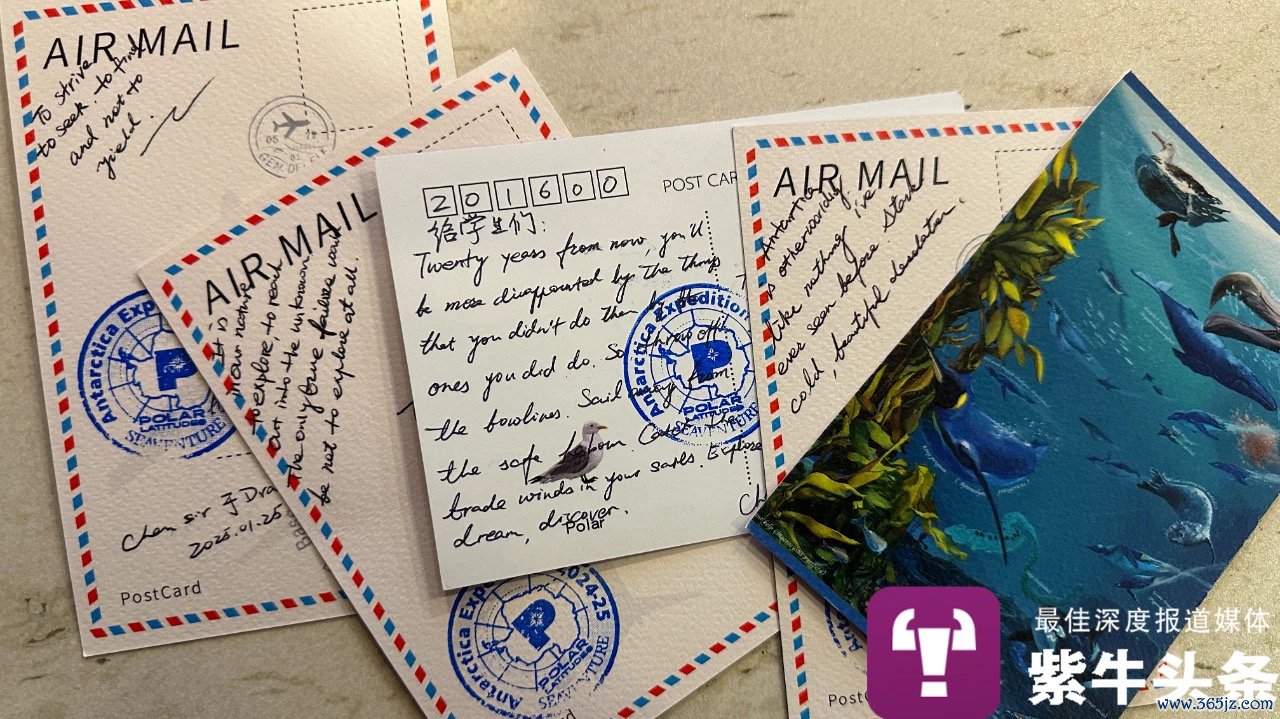 AIR MAIL
To strive
to seek. to find
and not to
yield.
Antarctica Ex
POLAR
LATITUDES
SEAVENTURE
Chen sir 于Dra
2025.01.25
PostCard
AIR MAIL
It is
in our nature
to explore, to reach
out into the unknown.
The only true failure would
be not to explore at all.
Antarctica Exp
2024-25
POLAR
LATITUDES
SEAVENTURE
201600
POST CAR
给学生们:
Twenty years from now, you'll
be more disappointed by the things
that you didn't do than by the
ones you did do. So throw off
the bowlines. Sail away from
the safe harbor. Catch the
trade winds in your sails. Explore
dream, discover.
Polar
Antarctica Expedition
POLAR
LATITUDES
SEAVENTURE
Ch
AIR MAIL
Antarctica
is otherworldly
like nothing I've
ever seen before. Stark
cold, beautiful desolation.
PostC
最佳深度报道媒体
紫牛头条
www.365jz.com